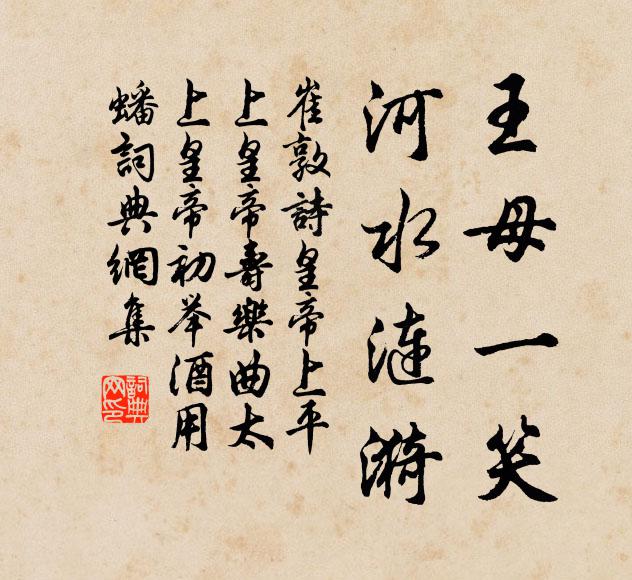 王母一笑
河水漣漪
崔敦詩皇帝上平
上皇帝壽樂曲太
上皇帝初举酒用
蟠詞典網集
詞典网印